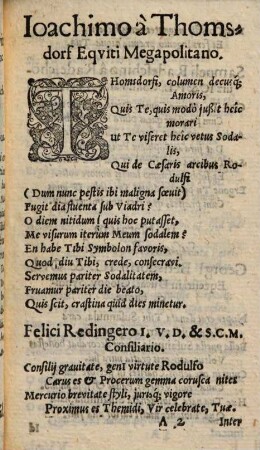 Ioachimo à Thoms-
dorf Eqviti Megapolitano.
THomsdorfi, columen decusq;
Amoris,
Quis Te, quis modò jußit heic
morari
ut Te viseret heic vetus Soda-
lis,
Qui de Cæsaris arcibus Ro-
dulfi
(Dum nunc pestis ibi maligna sœvit)
Fugit dia fluenta sub Viadri?
O diem nitidum! quis hoc putasset,
Me visurum iterum Meum sodalem?
En habe Tibi Symbolon favoris,
Quod, diu Tibi, crede, consecravi.
Servemus pariter Sodalitatem,
Fruamur pariter die beato,
Quis scit, crastina quid dies minetur.
Felici Redingero I. V. D, & S. C. M.
Consiliario.
Consilij grauitate, geni virtute Rodulfo
Carus es & Procerum gemma corusca nites
Mercurio brevitate styli, jurisq; vigore
Proximus es Themidi, Vir celebrate, Tuæ.
A 2 Inter